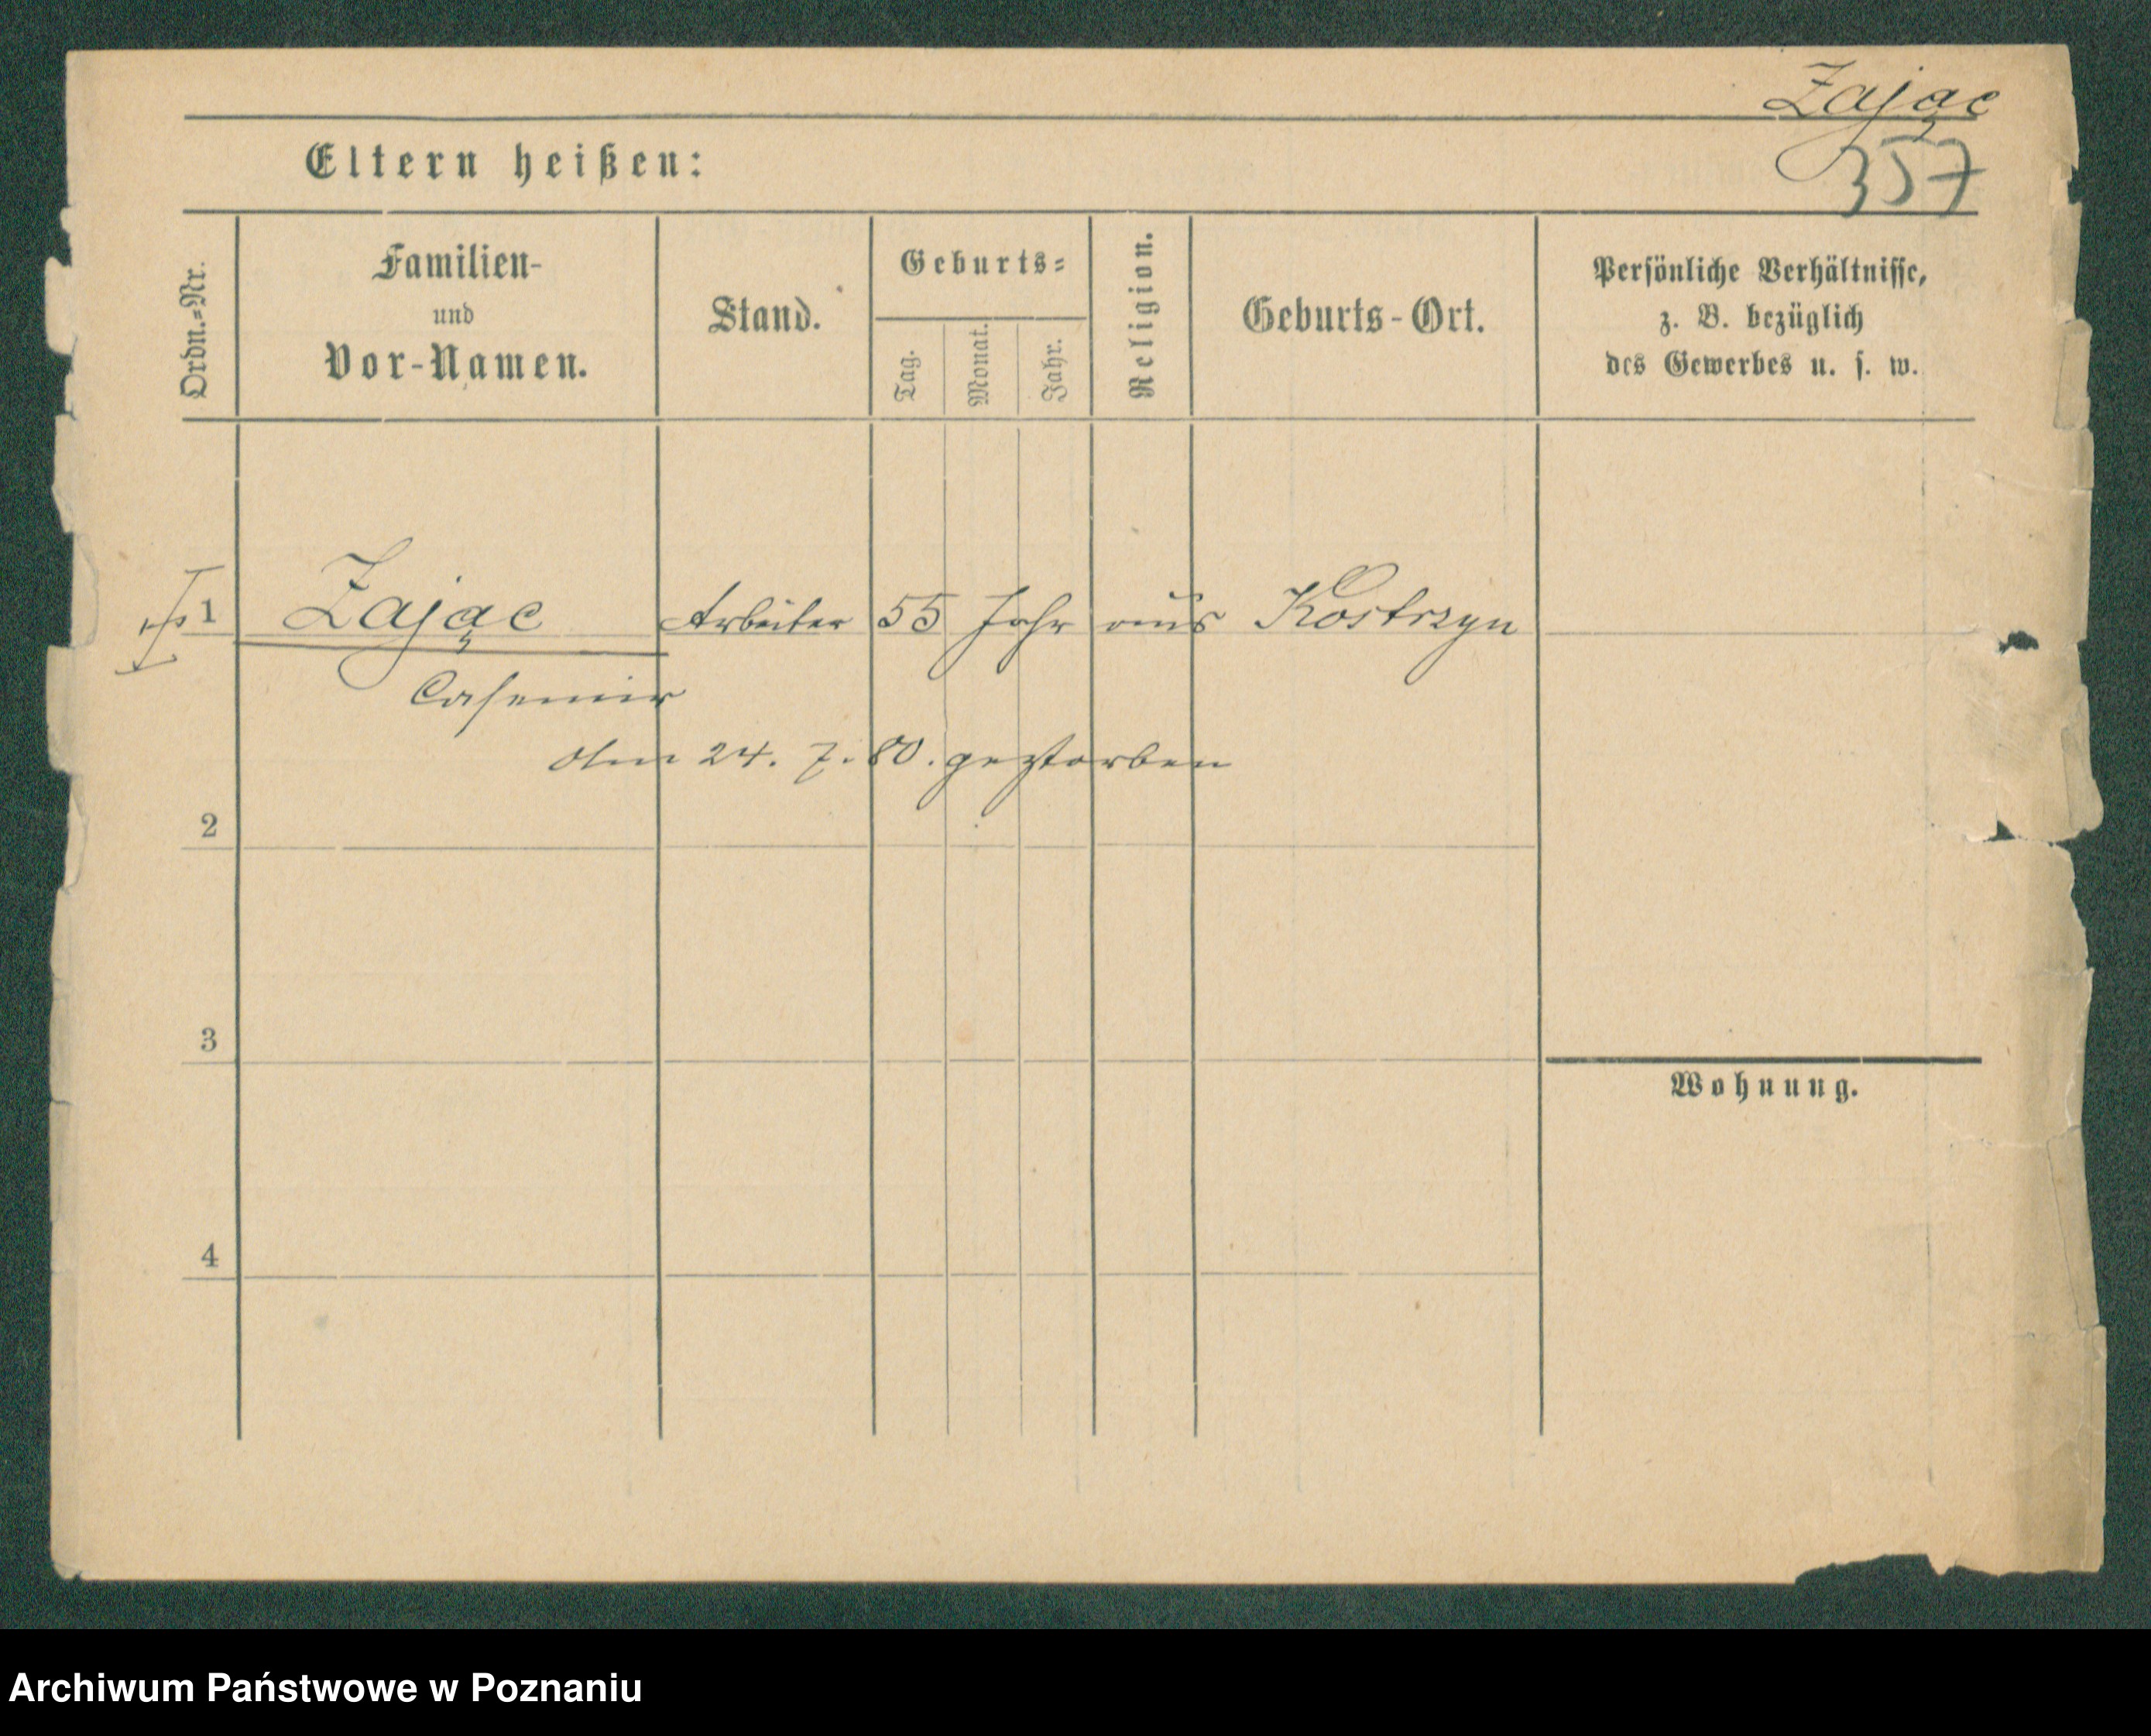 Zając
Eltern heißen:
357
Ordn.-Nr.
Familien-
und
Vor-Namen.
Stand.
Geburts-
Tag.
Monat.
Jahr.
Religion.
Geburts-Ort.
Persönliche Verhältnisse,
z. B. bezüglich
des Gewerbes u. s. w.
1 Zając Arbeiter 55 Jahr aus Kostrzyn
Casemir
Am 24. 7. 80. gestorben
2
3
Wohnung.
4
Archiwum Państwowe w Poznaniu